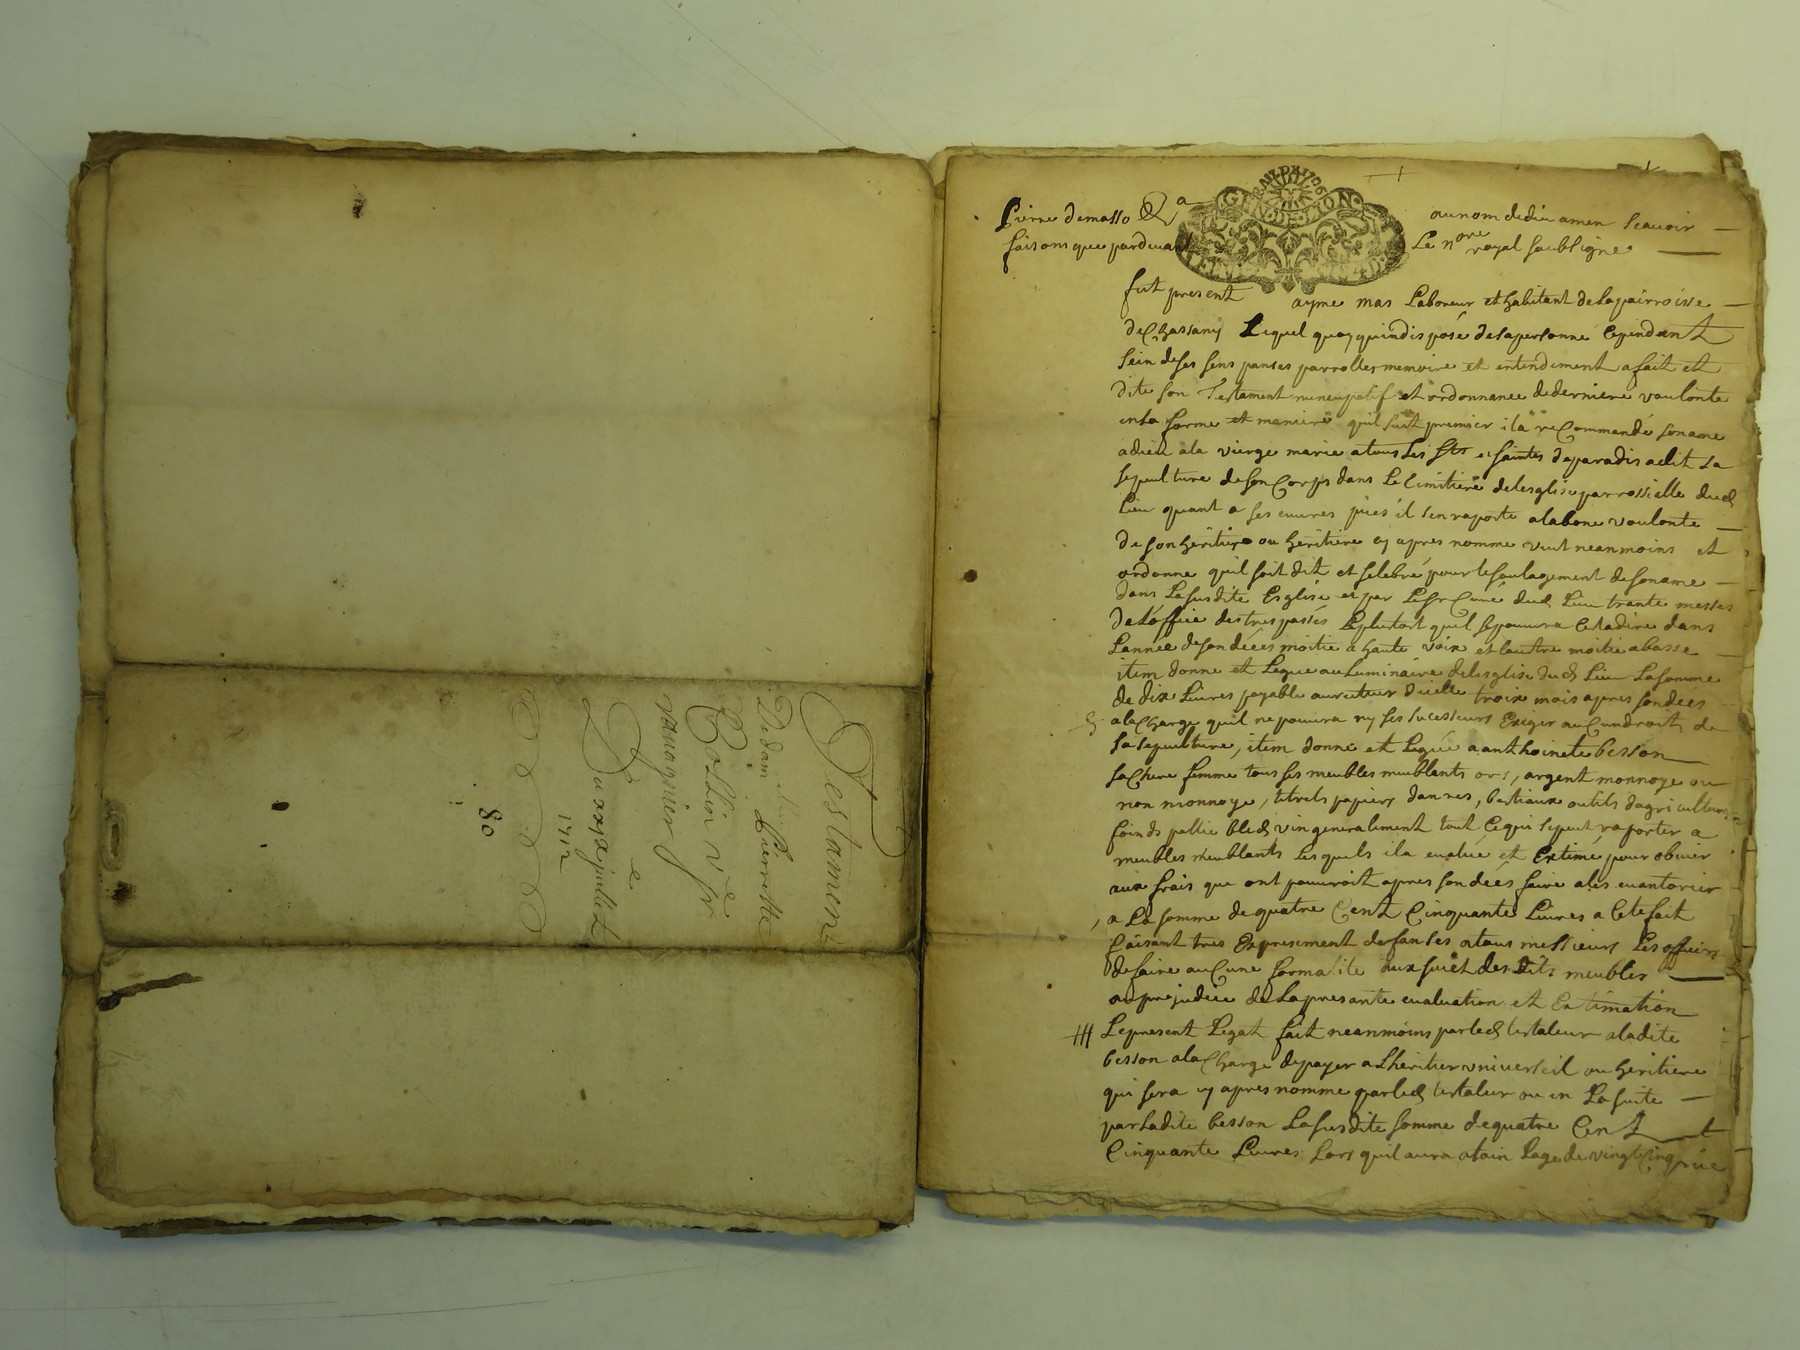 Testament
De dam Pierrette
Collin v^e
Du xx^e juillet
1712
80
GEN. DE LYON
Pierre demasso &^a au nom de dieu amen Scavoir
faisons que pardevant Le n^ore royal soubsigne
fut present ayme mas Laboreur et habitant de la parroisse
de Chassany Lequel quoy quindisposé de sa personne Cependant
sein de ses sens panses parrolles memoire et entendiment a fait et
dite son Testament nuncupatif et ordonnance de derniere voulonte
en la forme et maniere quil suit premier il a recommandé son ame
a dieu a la vierge marie a tous les Sts et saintes de paradis a elit sa
sepeulture de son Corps dans Le Cimitiere de lesglise parrossielle dud
Lieu quant a ses euvres pies il sen raporte a la bone voulonte
de son héritier ou héritiere cy apres nomme veut neanmoins et
ordonne quil soit dit et selebré pour le soulagement de son ame
dans La susdite Esglise et par Le Sr Curé dud Lieu trante messes
de Loffice des trespassés Le plutost quil se pourra Cestadire dans
Lannee de son décés moitie a haute voix et lautre moitie a basse
item donne et Legue au Luminaire de lesglise dud Lieu La somme
de dix Livres payable au recteur dicelle trois mois apres son déces
a la Charge quil ne pourra ny ses sucesseurs Exeger auCun droit de
sa sepeulture, item donne et Legue a anthoinete besson
sa Chere femme tous ses meubles meublants ors, argent monnoye ou
non monnoye, titrels papiers danres, bestiaux outils dagriculture
foinds pallie bled vin generalement tout Ce qui se peut raporter a
meubles meublants Les quels il a evalué et Extimé pour obvier
aux frais que ont pouvroit apres son décés faire a les evantorier
a La somme de quatre Cent Cinquante Livres a Cete fait
faisant tres Expresement defanses a tous messieurs Les officiers
de faire auCune formalite aux suiet des dits meubles
au prejudice de La presante evaluation et Extimation
Le present Legat fait neanmoins par led testateur a ladite
besson a la Charge de payer a Lhéritier universeil ou héritiere
qui sera cy apres nomme par led testateur ou en La suite
par Ladite besson La susdite somme de quatre Cent
Cinquante Livres Lors quil aura atain Lage de vingt Cinq